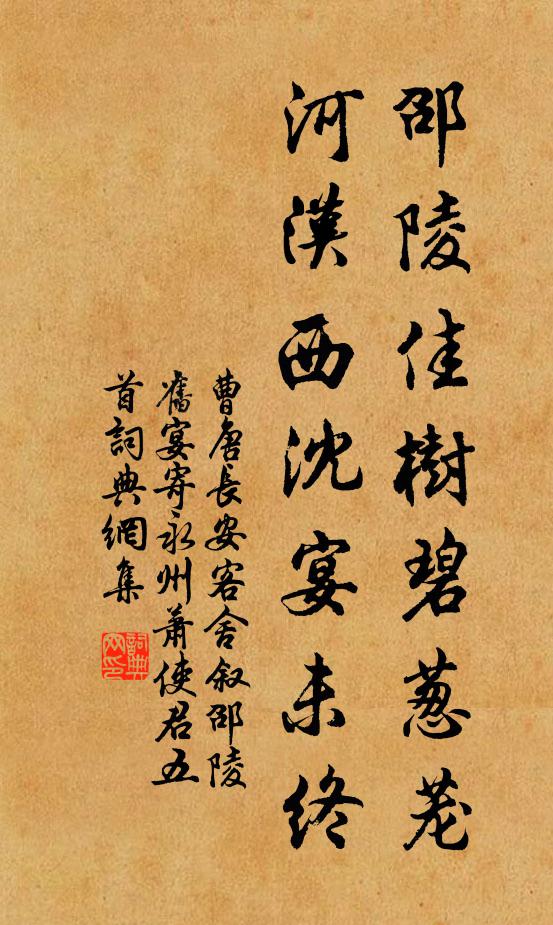 邵陵佳樹碧葱蘢
河漢西沈宴未終
曹唐長安客舍叙邵陵
舊宴寄永州蕭使君五
首詞典網集
詞典网印